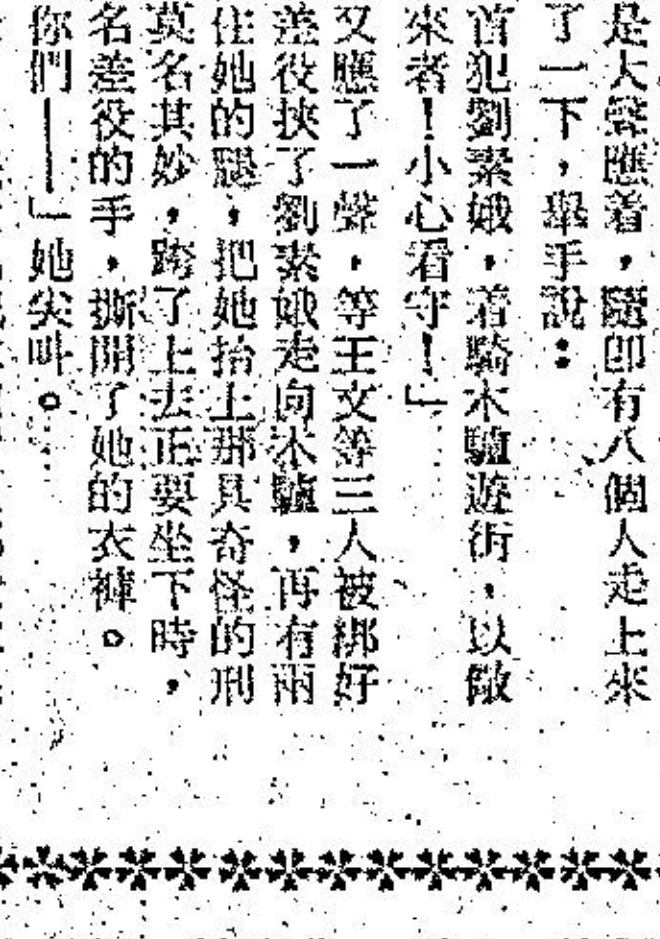 是大聲應着，隨即有八個人走上來
了一下，舉手說：
首犯劉素娥，着騎木驢遊街，以儆
來者！小心看守！」
又應了一聲，等王文等三人被綁好
差役挾了劉素娥走向木驢，再有兩
住她的腿，把她抬上那具奇怪的刑
莫名其妙，跨了上去正要坐下時，
名差役的手，撕開了她的衣褲。
你們——」她尖叫。